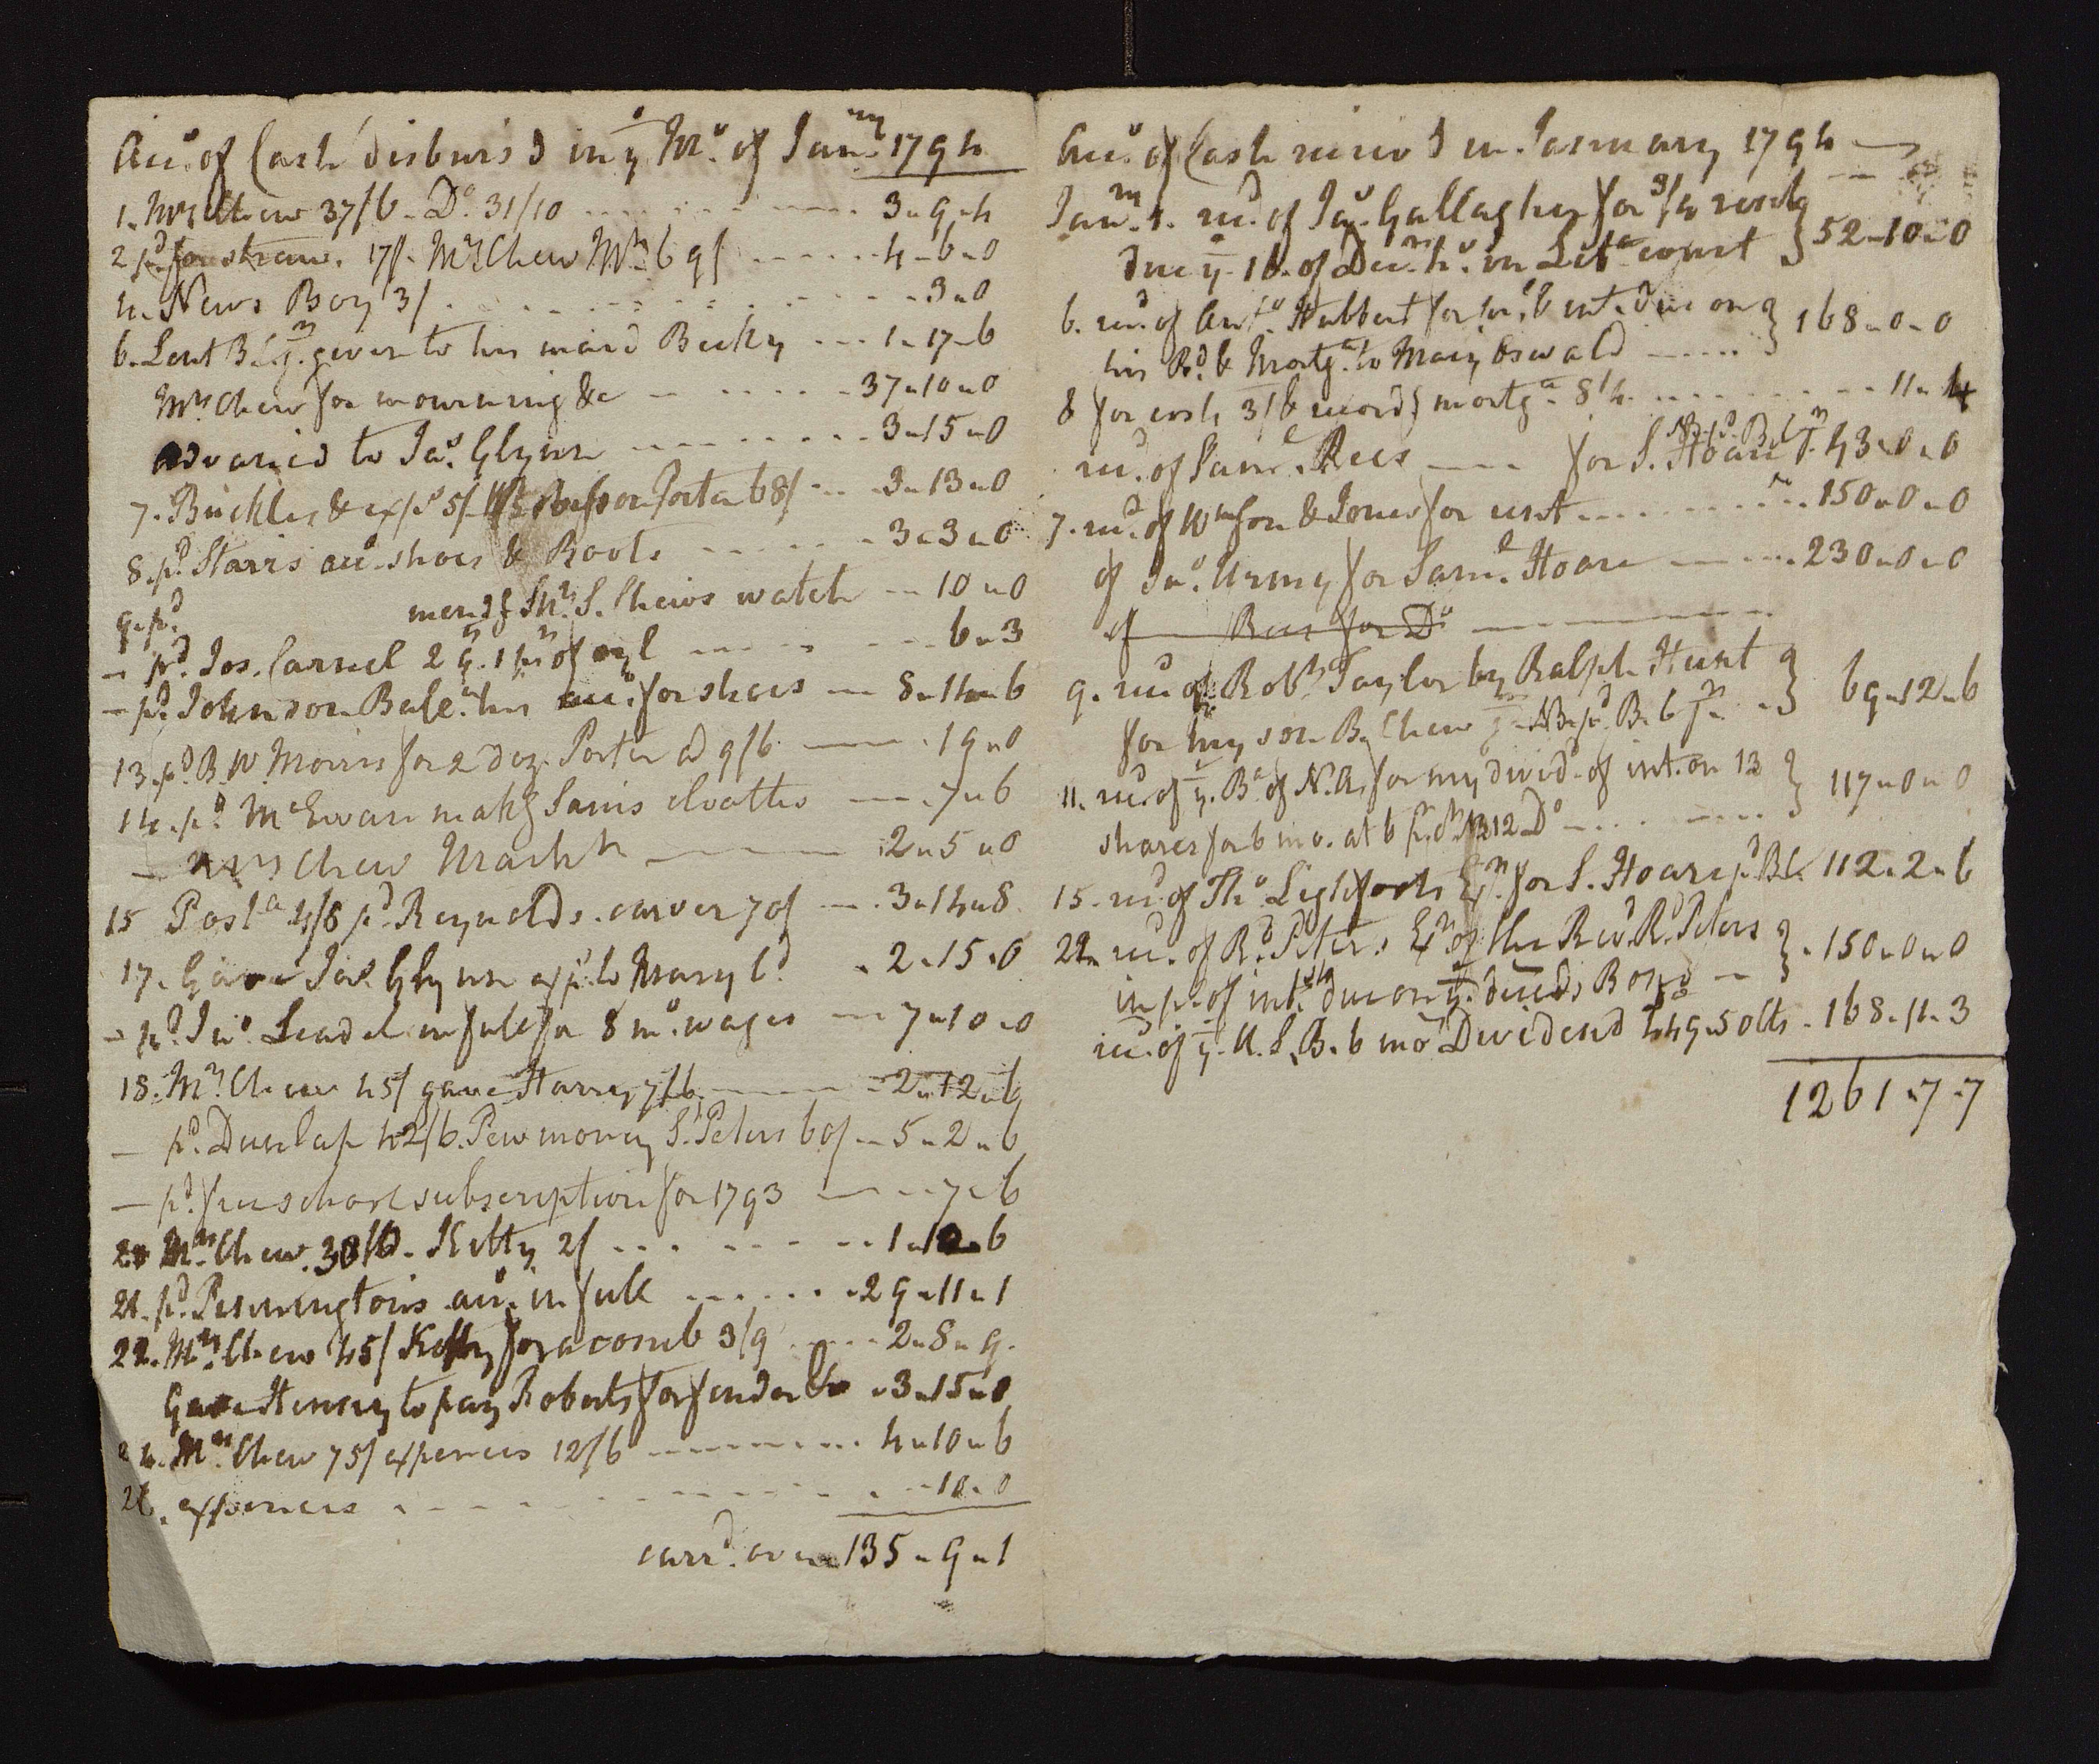 Acco. of Cash disburs'd in ye Mo. of Jany. 1794
1. Mrs Chew 37/6 - Do. 31/10 3 " 9 " 4
2 pd for straw. 17/. Mrs Chew Mt. 69/ 4 - 6 - 0
4. News Boy 3/ 3 " 0
6. Lent B.C. Jr. given to his maid Becky 1 - 17 - 6
Mrs Chew for mourning &c 37 " 10 " 0
advanced to Jas. Glynn 3 " 15 " 0
7. Buckles & exps 5/ for Porter 68/ 3 " 13 " 0
8. pd. Starrs acco. shoes & Boots 3 " 3 " 0
9. pd. mendg S. Chews watch 10 " 0
- pd. Jos. Carrel 2 q. 1 pt of oyl 6 " 3
- pd. Johnson Bale. his acco. for shoes 8 " 14 " 6
13. pd. B. W. Morris for 2 doz. Porter @ 9/6 19 " 0
14. pd. McEwan makg Sams cloaths 7 " 6
- Mrs Chew Markt 2 " 5 " 0
15 Posta. 4/8 pd. Reynolds. carver 70/ 3 " 14 " 8
17. Gave Jas. Glynn exps to Maryld. 2 " 15 " 0
- pd. Jno. Leadel in full for 8 mo. wages 7 " 10 " 0
18. Mrs. Chew 45/ gave Harry 7/6 2 " 12 " 6
- pd. Dunlap 42/6. Pew money St. Peters 60/ 5 " 2 " 6
- pd. free school subscription for 1793 7 " 6
20 Mrs Chew. 30/6. Kitty 2/ 1 " 12 " 6
21. pd. Penningtons acco. in full 29 " 11 " 1
22. Mrs. Chew 45/ Kitty for a comb 3/9 2 " 8 " 9.
Gave Henry to pay Roberts for fender &c 3 " 15 " 0
24. Mrs Chew 75/ expences 12/6 4 " 10 " 6
26. expences 10 " 0
carrd. over 135 " 9 " 1
Acco. of Cash receiv'd in January 1794
Jany. 1. recd. of Jas. Gallagher for 3/4 rents
due ye 16. of Decr. 4o. in Leta. court } 52 - 10 " 0
6. recd. of Anto. Hubbert for int. due on
his Bd. & Mortg. to Mary Oswald } 168 " 0 " 0
8 for cash 3/6 recordg mortga. 8/4 11 " 4
recd. of Saml. Rees for S. Hoare 43 " 0 " 0
7. recd. of Wmson & Jones for rent 150 " 0 " 0
of Jno. Urmy for Saml. Hoare 230 " 0 " 0
of Rees for Do
9. recd of Robt. Taylor by Ralph Hunt
for my son B. Chew Jr. NB. pd. B. C. Jr. } 69 " 12 " 6
11. recd. of ye Ba. of N. A. for my divid. of int. on 13
shares for 6 mo. at 6 pr. Ct. 312 Do } 117 " 0 " 0
15. recd of Tho. Lightfoots Exr. for S. Hoare pd. BC. 112 " 2 " 6
22. recd. of Rd. Peters Exr of the Revd. R. Peters
in pt. of int. due on ye deceds Bond } 150 " 0 " 0
recd. of ye U. S. B. 6 mo Dividend 449.50 cts 168 " 11 " 3
1261 " 7 " 7